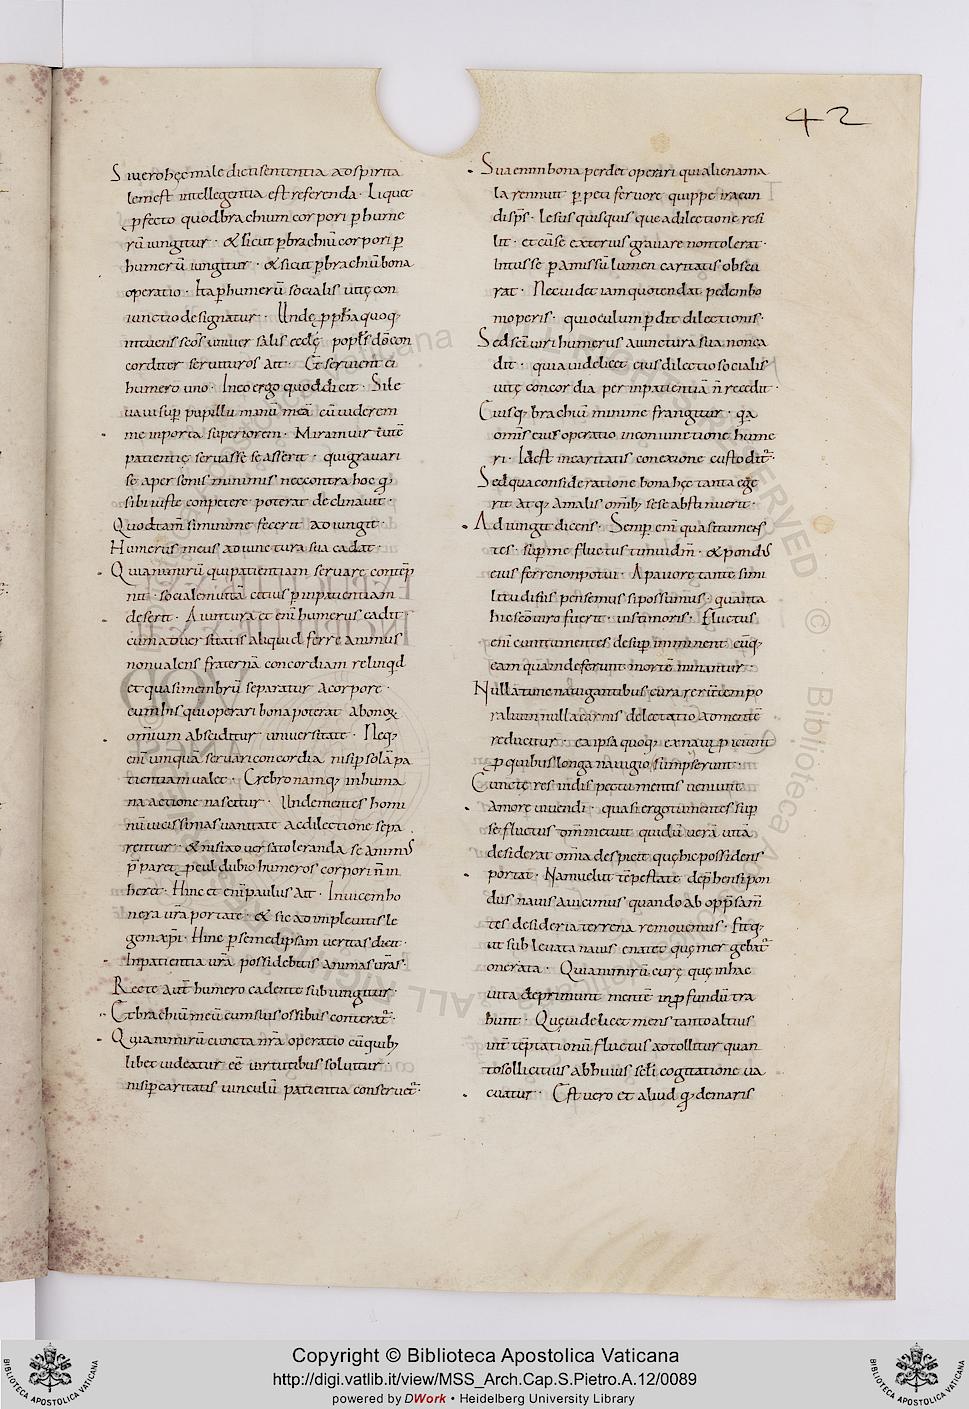 42
Si vero hęc male dicti sententia ad spirita
lem est intellegentia est referenda · Liquet
ꝓfecto quod brachium corpori p̱ hume
rū iungitur · & sicut p̱ brachiū corpori p̱
humerū iungitur · & sicut p̱ brachiū bona
operatio · Ita p̱ humerū socialis vitę con
iunctio designatur ·
intuens
corditer servituros ait · Et servient ei
humero uno · In eo ergo quod dicit · Si le
vavi sup̱ pupillū manū meā cū viderem
me in porta superiorem · Miram vir iste
patientię servasse se asserit · qui gravari
se a personis minimis nec contra hoc qđ
sibi iuste conpetere poterat declinavit ·
Quod tam̄ si minime fecerit adiungit ·
Humerus meus a iunctura sua cadat ·
Quia nimirū qui patientiam servare contēp
nit · socialem vitā cetius p̱ inpatientiam
deserit · A iunctura et enī humerus cadit
cum adversitatis aliquid ferre animus
non valens fraternā concordiam relinq̇d
et quasi membrū separatur a corpore ·
cum his qui operari bona poterat a bonoꝝ
omium absciditur universitate · Neq;
enī umquā servari concordia nisi p̱ solā pa
tientiam valet · Crebro namq; in huma
na actione nascitur · Unde mentes homi
nū vicissim a sua unitate ac dilectione sepa
rentur · & nisi ad versa toleranda se animꝰ
p̄paret · ꝓcul dubio humeros corpori ñ in
heret · Hinc et enī paulus ait · Invicem ho
nera vr̄a portate · & sic adimplevitis le
gem xp̄i · Hinc p̱ semedipsam veritas dicit ·
In patientia vr̄a possidebitis animas vr̄as ·
Recte aut̄ humero cadente subiungitur ·
Et brachiū meū cum suis ossibus conterat̄ ·
Quia nimirū cuncta nr̄a operatio cū quib;
libet videatur eē in virtutibus solvitur ·
nisi p̱ caritatis vinculū patientia conservet̄ ·
Sua enim bona perdet operari qui aliena ma
la rennuit p̱peti fervore quippe iracun
disp̱s · Iesus quisquis que a dilectione resi
lit · et cū se exterius gravare non tolerat ·
Intus se p̱ amissū lumen caritatis obscu
rat · Nec videt iam quo tendat pedem bo
ni operis · qui oculum p̱dit dilectionis ·
Sed sc̄i viri humerus a iunctura sua non ca
dit · quia videlicet eius dilectio socialis
vitę concordia per inpatientiā ñ recedit ·
Cuiusq; brachiū minime frangitur · qa
omīs eius operatio in coniunctione hume
ri · Id est in caritatis conexione custodit̄ ·
Sed qua consideratione bona hęc tanta ege
rit atq; a malis omīb; sese abstinuerit ·
Adiungit dicens · Semp̱ enī quasi tumen
tes · sup̱ me fluctus timui dn̄m · & pondꝰ
eius ferre non potui · A pavore tante simi
litudis ius pensemus si possumus · quanta
hic sc̄o viro fuerit · vis timoris · Fluctus
enī cum tumentes desup̱ imminent cūq;
eam quam deferunt mortē minantur ·
Nulla tunc navigantibus cura rerū tempo
ralium nulla carnis delectatio ad mentē
reducitur · ea ipsa quoq; ex navi ꝓiciunt
ꝓ quibus longa navigio sumpserunt ·
Cuncte res in dispectu mentis veniunt
amore vivendi · quasi ergo tumentes sup̱
se fluctus dn̄m metuit qui dū verā vitā
desiderat omīa despicit quę hic possidens
portat · Nam velut tēpestate dep̱hensi pon
dus navis auicimus quando ab opp̱ssam̄
tes desideria terrena removemus · Fitq;
ut sublevata navis enatet quę mergebat̄
onerata · Quia nimirū curę quę in hac
vita deprimunt mentē in ꝓfundū tra
hunt · Quę videlicet mens tanto altius
int̄ tēptationū fluctus adtollitur quan
to sollicitius ab huius sc̄li cogitatione va
cuatur · Est vero et aliud qđ de maris
Copyright © Biblioteca Apostolica Vaticana
http://digi.vatlib.it/view/MSS_Arch.Cap.S.Pietro.A.12/0089
powered by DWork • Heidelberg University Library
BIBLIOTECA APOSTOLICA VATICANA
BIBLIOTECA APOSTOLICA VATICANA